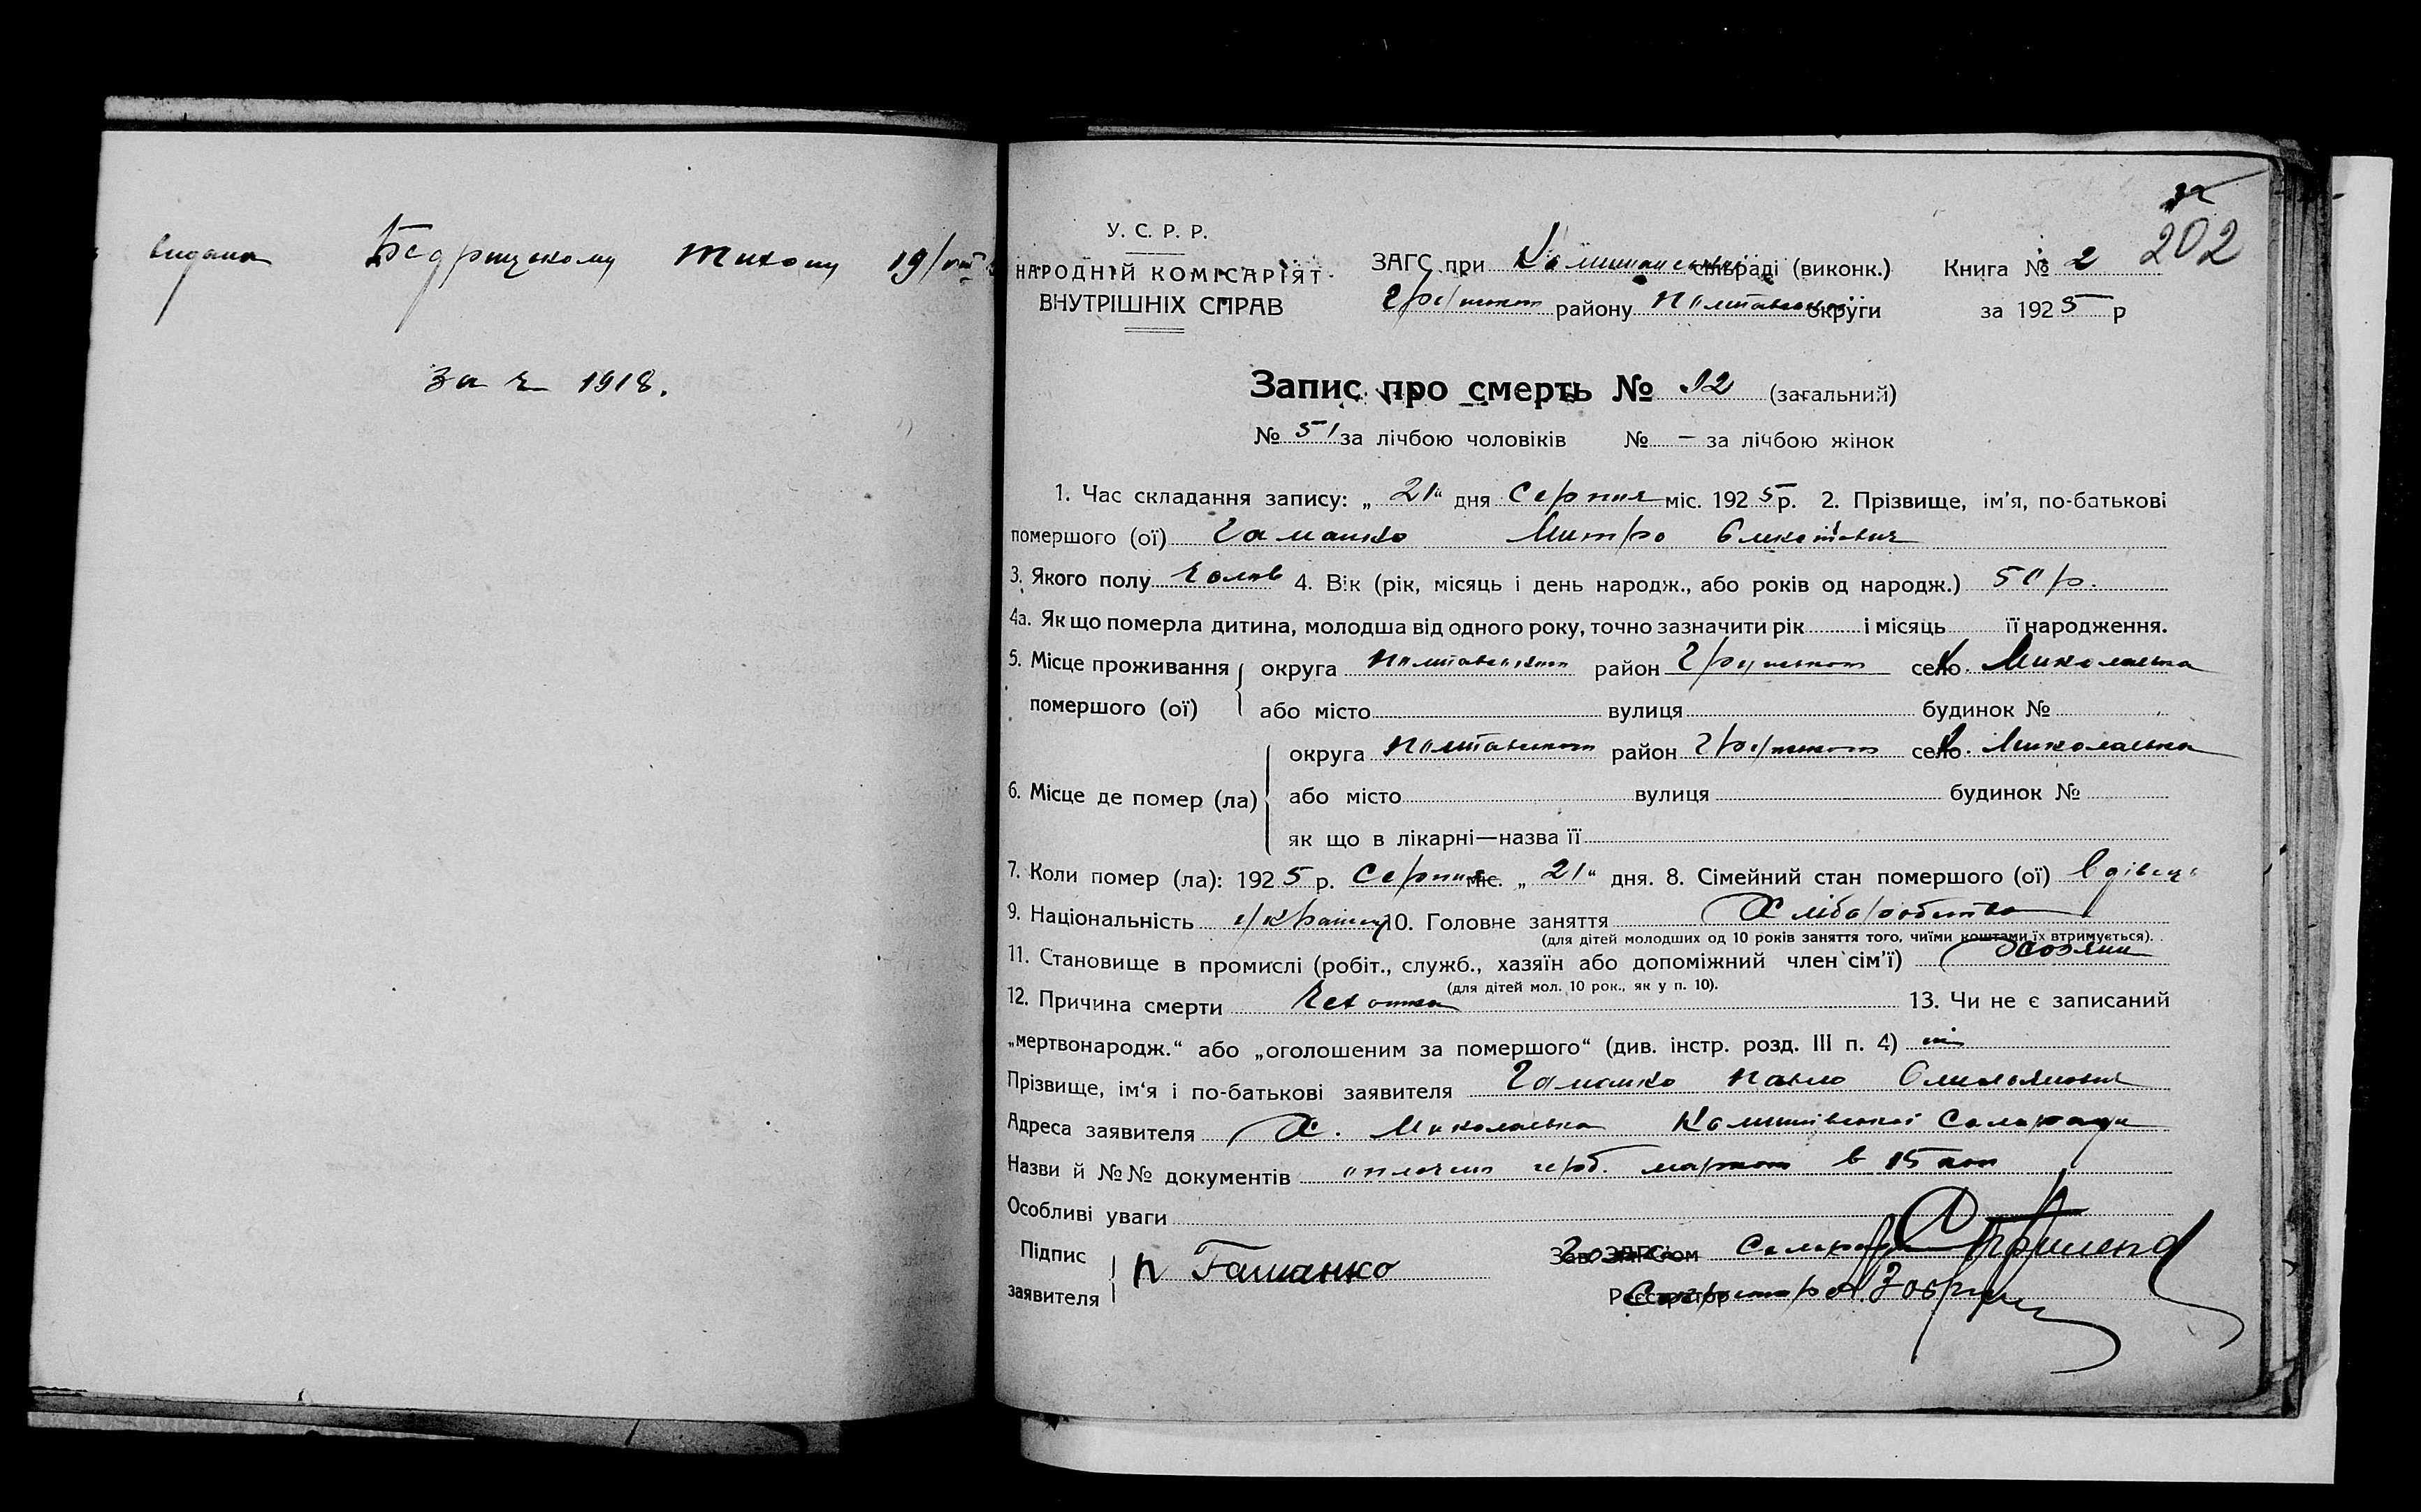 видана Бедрицькому Тихону 19/VIII
за № 1918.
202
У. С. Р. Р.
НАРОДНІЙ КОМІСАРІЯТ
ВНУТРІШНІХ СПРАВ
ЗАГС при сільраді (виконк.)
району Полтавської округи
Книга № 2
за 1925 р
Запис про смерть № 92 (загальний)
№ 51 за лічбою чоловіків № — за лічбою жінок
1. Час складання запису: „21“ дня Серпня міс. 1925 р. 2. Прізвище, ім'я, по-батькові
помершого (ої) Гаманко Митро
3. Якого полу Чолов 4. Вік (рік, місяць і день народж., або років од народж.) 50 р.
4а. Як що померла дитина, молодша від одного року, точно зазначити рік і місяць її народження.
5. Місце проживання помершого (ої) округа Полтавської район село Х. Миколаївка
або місто вулиця будинок №
6. Місце де помер (ла) округа Полтавської район село Х. Миколаївка
або місто вулиця будинок №
як що в лікарні—назва її
7. Коли помер (ла): 1925 р. Серпня міс. „21“ дня. 8. Сімейний стан помершого (ої) Вдівець
9. Національність українець 10. Головне заняття Хліборобство
(для дітей молодших од 10 років заняття того, чиїми коштами їх втримується).
11. Становище в промислі (робіт., служб., хазяїн або допоміжний член сім'ї) Хазяїн
(для дітей мол. 10 рок., як у п. 10).
12. Причина смерти Чехотка 13. Чи не є записаний
„мертвонародж.“ або „оголошеним за помершого“ (див. інстр. розд. III п. 4) ні
Прізвище, ім'я і по-батькові заявителя Гаманко Павло Омельянович
Адреса заявителя Х. Миколаївка Сільради
Назви й №№ документів оплочено герб. маркою в 15 коп
Особливі уваги
Підпис заявителя П Гаманко
Зав. ЗАГС'ом Голова Сільради
Реєстратор Секретар